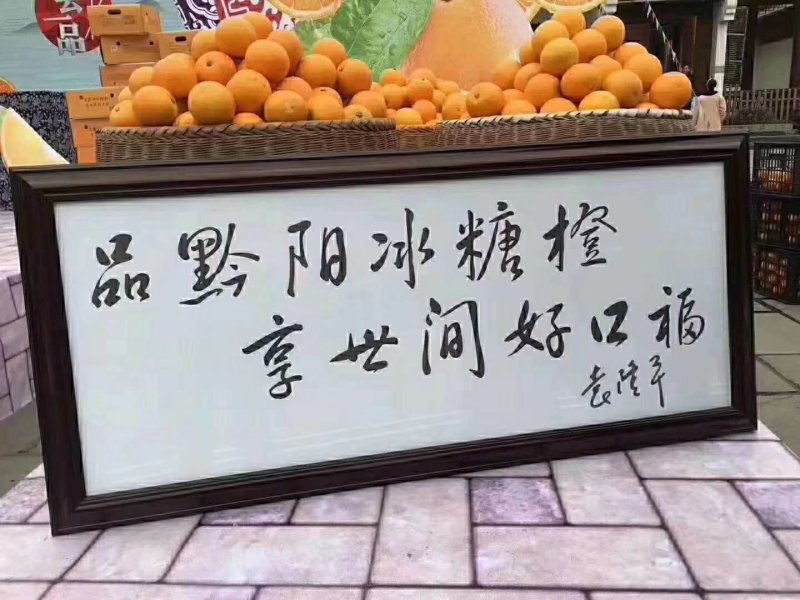 品黔阳冰糖橙
享世间好口福
袁隆平
一品